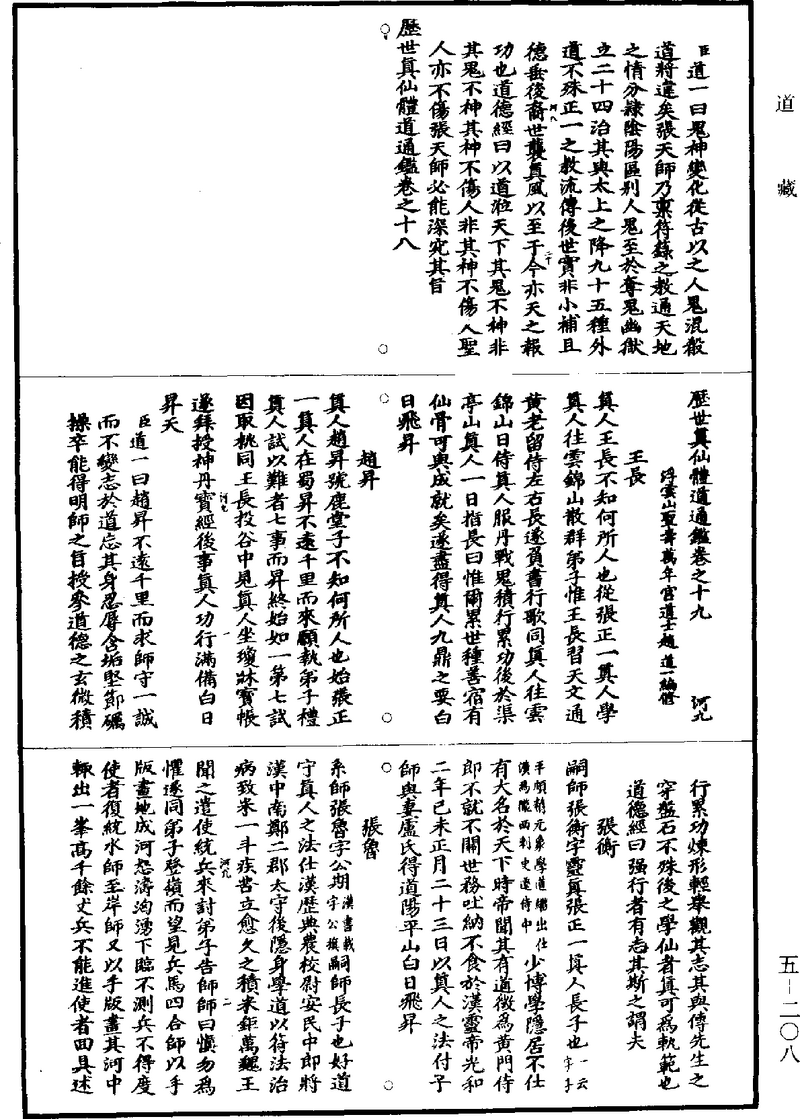 道藏
臣道一曰鬼神變化從古以之人鬼混殽
道將違矣張天師乃禀符籙之教通天地
之情分隷陰陽區别人鬼至於奪鬼幽獄
立二十四治其與太上之降九十五種外
道不殊正一之教流傳後世實非小補且
德垂後裔世襲真風以至于今亦天之報
河八
二十
功也道德經曰以道蒞天下其鬼不神非
其鬼不神其神不傷人非其神不傷人聖
人亦不傷張天師必能深究其旨
歷世真仙體道通鑑卷之十八
歷世真仙體道通鑑卷之十九
河九
浮雲山聖壽萬年宫道士趙道一編修
王長
真人王長不知何所人也從張正一真人學
真人往雲錦山散群弟子惟王長習天文通
黄老留侍左右長遂負書行歌同真人往雲
錦山日侍真人服丹戰鬼積行累功後於渠
亭山真人一日指長曰惟爾累世種善宿有
仙骨可與成就矣遂盡得真人九鼎之要白
日飛昇
趙昇
真人趙昇號鹿堂子不知何所人也始張正
一真人在蜀昇不遠千里而來願執弟子禮
真人試以難者七事而昇終始如一第七試
因取桃同王長投谷中見真人坐瓊牀寶帳
河九
一
遂拜授神丹寶經後事真人功行滿備白日
昇天
臣道一曰趙昇不遠千里而求師守一誠
而不變志於道忘其身忍辱含垢堅節礪
操卒能得明師之旨授參道德之玄微積
行累功煉形輕舉觀其志其與傳先生之
穿盤石不殊後之學仙者真可為軌範也
道德經曰强行者有志其斯之謂夫
張衡
嗣師張衡字靈真張正一真人長子也一云字子
平順朝元

少博學隱居不仕
有大名於天下時帝聞其有道徵為黄門侍
郎不就不關世務吐納不食於漢靈帝光和
二年己未正月二十三日以真人之法付子
師與妻盧氏得道陽平山白日飛昇
張魯
系師張魯字公期漢書載字公旗嗣師長子也好道
守真人之法仕漢歷典農校尉安民中郎將
漢中南鄭二郡太守後隱身學道以符法治
病致米一斗疾苦立愈久之積米鉅萬魏王
河九
二
聞之遣使統兵來討弟子告師師曰慎勿為
懼遂同弟子登嶺而望見兵馬四合師以手
版畫地成河怒濤洶湧下臨不測兵不得度
使者復統水師至岸師又以手版畫其河中
輒出一峯高千餘丈兵不能進使者回具述
五-二〇八